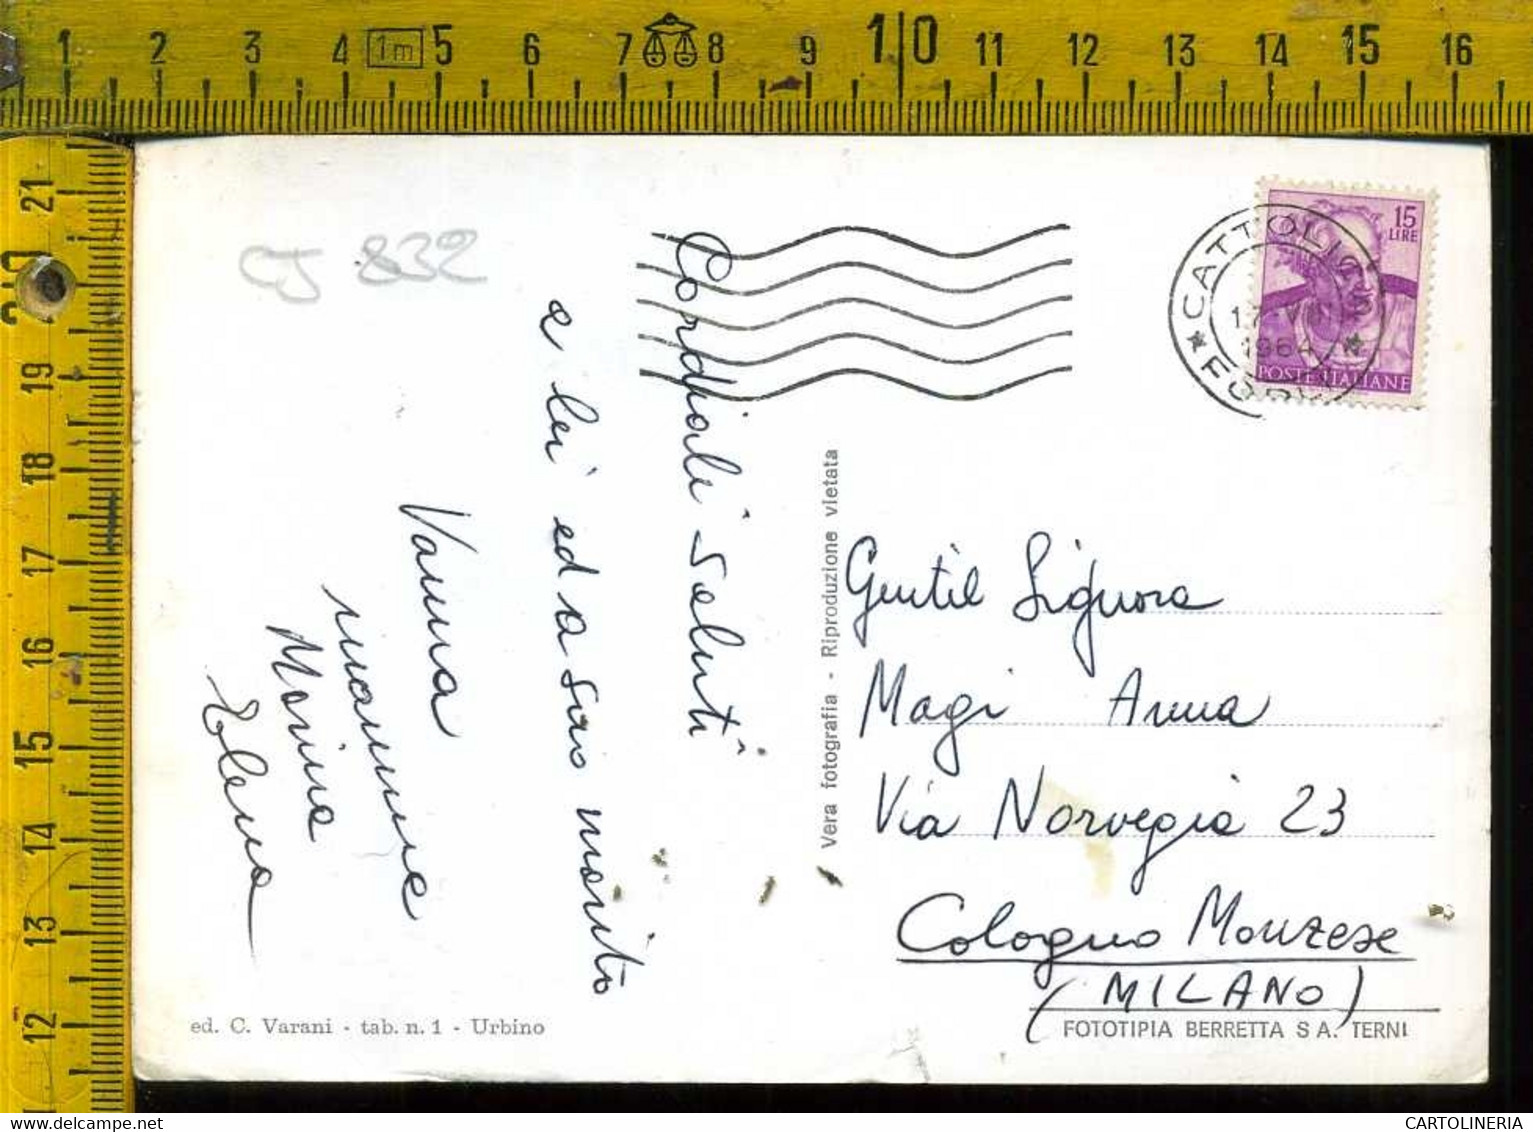 1 2 3 4 1m 5 6 7 8 9 10 11 12 13 14 15 16
21
20
19
18
17
16
15
14
13
12
CJ 832
15
LIRE
POSTE ITALIANE
1964
Cordiali saluti
a lei ed a suo marito
Vanna
mamme
Marina
Elena
Vera fotografia - Riproduzione vietata
Gentil Signora
Magi Anna
Via Norvegia 23
Cologno Monzese
(MILANO)
ed. C. Varani - tab. n. 1 - Urbino
FOTOTIPIA BERRETTA S A. TERNI
CARTOLINERIA